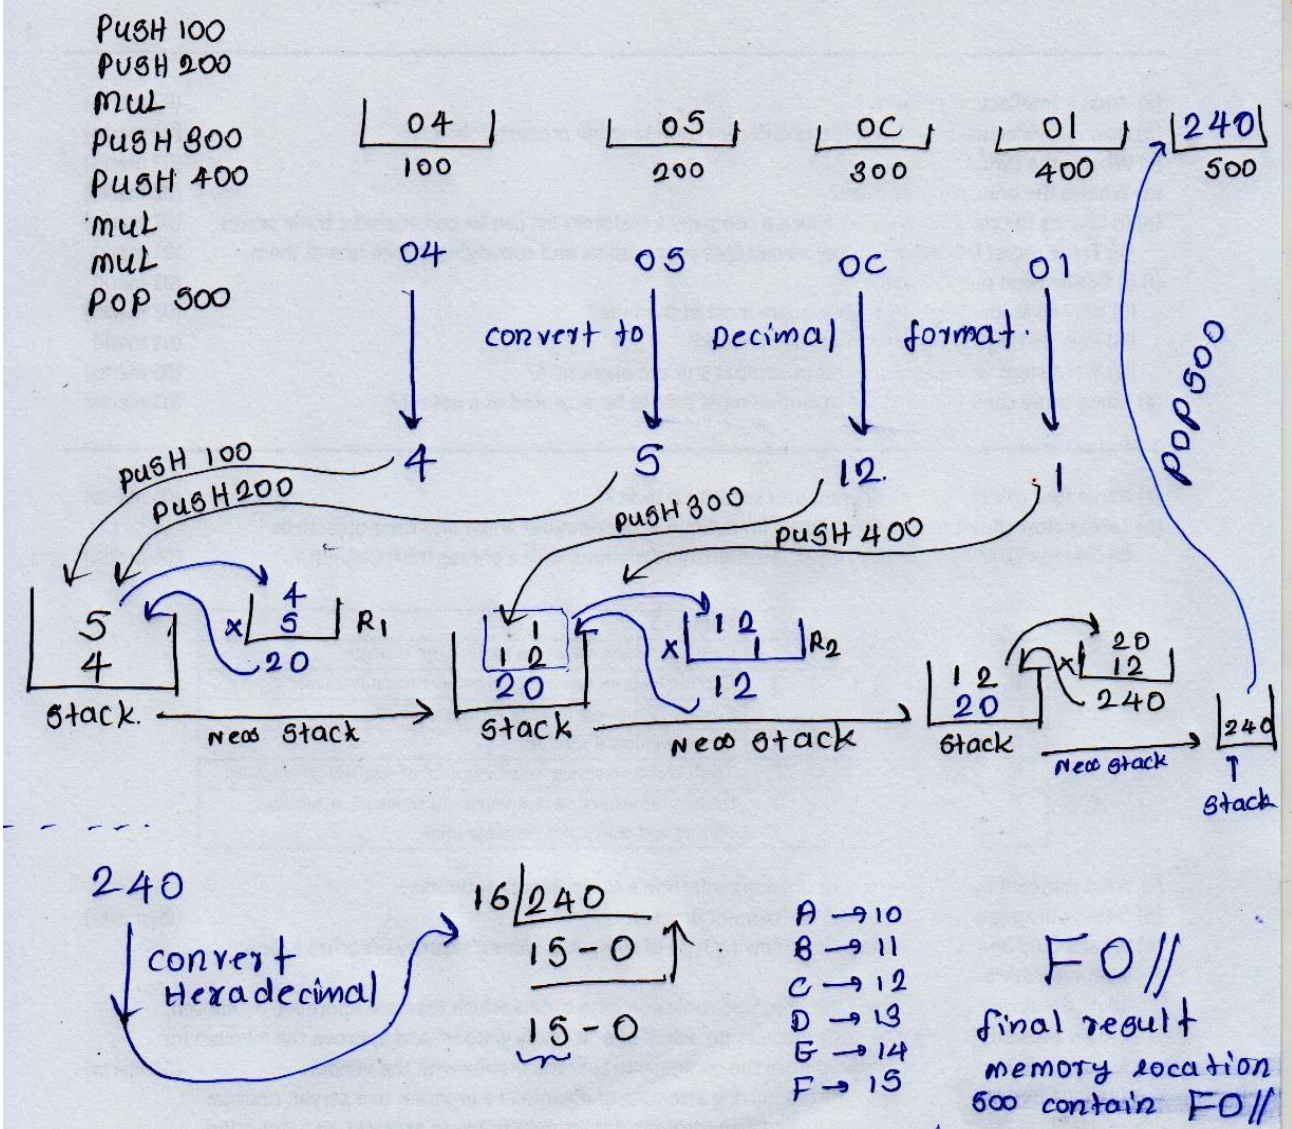 PUSH 100
PUSH 200
MUL
PUSH 300
PUSH 400
MUL
MUL
POP 500
04 05 0C 01 240
100 200 300 400 500
04 05 0C 01
convert to Decimal format.
4 5 12. 1
PUSH 100
PUSH 200
PUSH 300
PUSH 400
POP 500
5
4
Stack.
4
x 5 R1
20
New Stack
1
12
20
Stack
12
x 1 R2
12
New Stack
12
20
Stack
20
x 12
240
New Stack
240
Stack
240
convert
Hexadecimal
16 240
15-0
15-0
A → 10
B → 11
C → 12
D → 13
E → 14
F → 15
F0//
final result
memory location
500 contain F0//